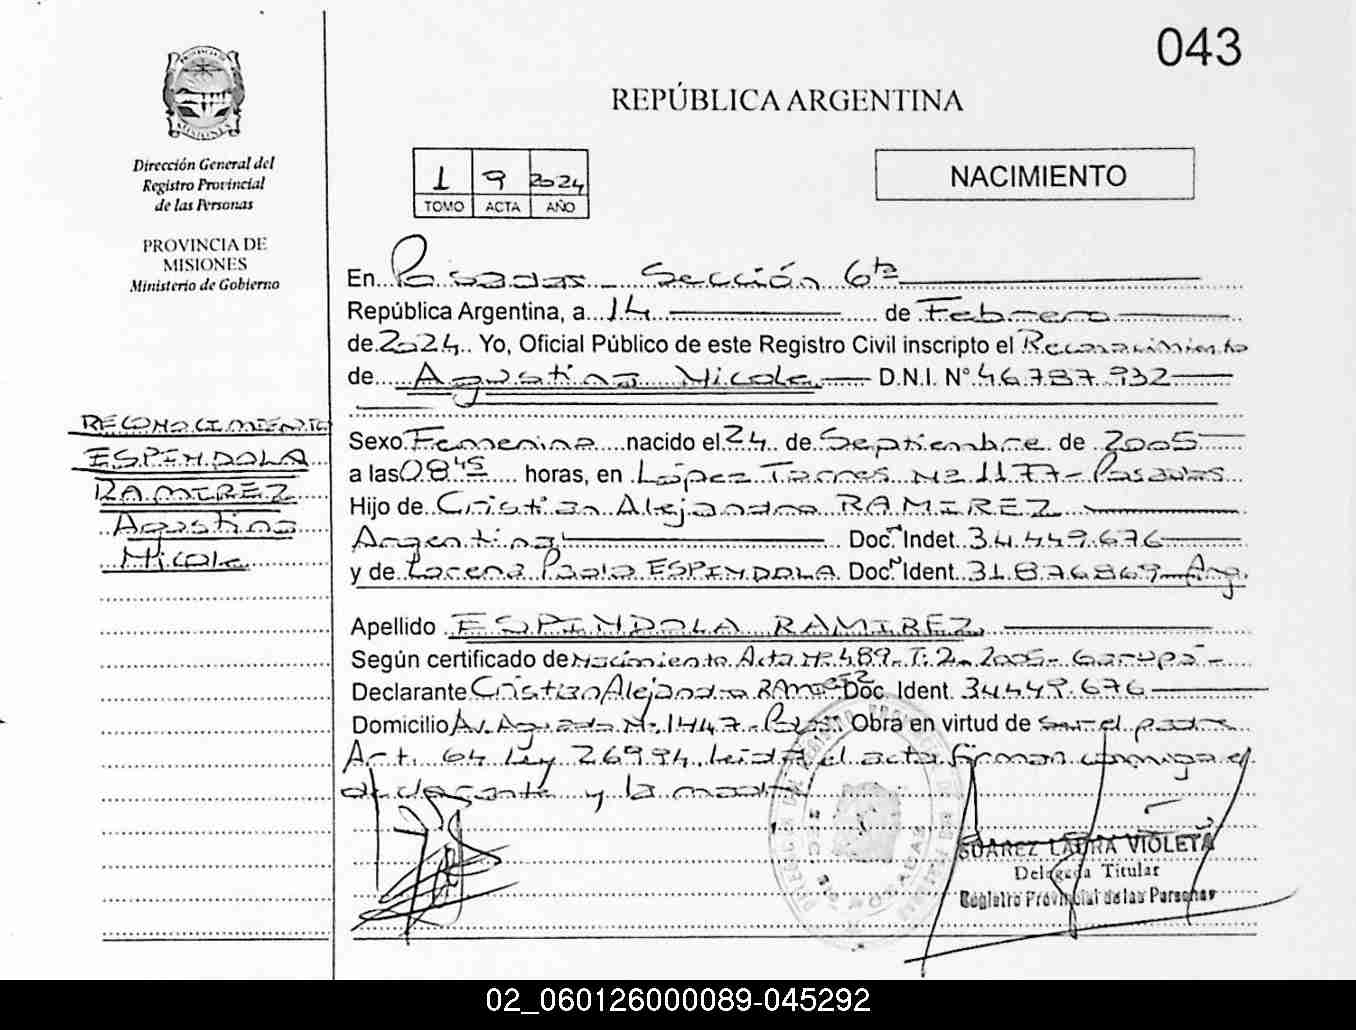 043
REPÚBLICA ARGENTINA
Dirección General del
Registro Provincial
de las Personas
PROVINCIA DE
MISIONES
Ministerio de Gobierno
1 9 2024
TOMO ACTA AÑO
NACIMIENTO
En Posadas - Sección 6ta
República Argentina, a 14 de Febrero
de 2024. Yo, Oficial Público de este Registro Civil inscripto el Reconocimiento
de Agustina Nicole D.N.I. N° 46.787.932
RECONOCIMIENTO
ESPINDOLA
RAMIREZ
Agustina
Nicole
Sexo Femenino nacido el 24 de Septiembre de 2005
a las 08 45 horas, en López Torres Nº 1177 - Posadas
Hijo de Cristian Alejandro RAMIREZ
Argentina Doc. Indet. 34.449.676
y de Lorena Paola ESPINDOLA Doc. Ident. 31.876.869 - Arg.
Apellido ESPINDOLA RAMIREZ
Según certificado de Nacimiento Acta Nº 489 - T: 2 - 2005 - Garupá -
Declarante Cristian Alejandro RAMIREZ Doc. Ident. 34.449.676
Domicilio Av. Aguado Nº 1447 - Obra en virtud de ser el padre
Art. 64 Ley 26994. Leida el acta firman conmigo el
declarante y la madre
SUAREZ LAURA VIOLETA
Delegada Titular
Registro Provincial de las Personas
02_060126000089-045292